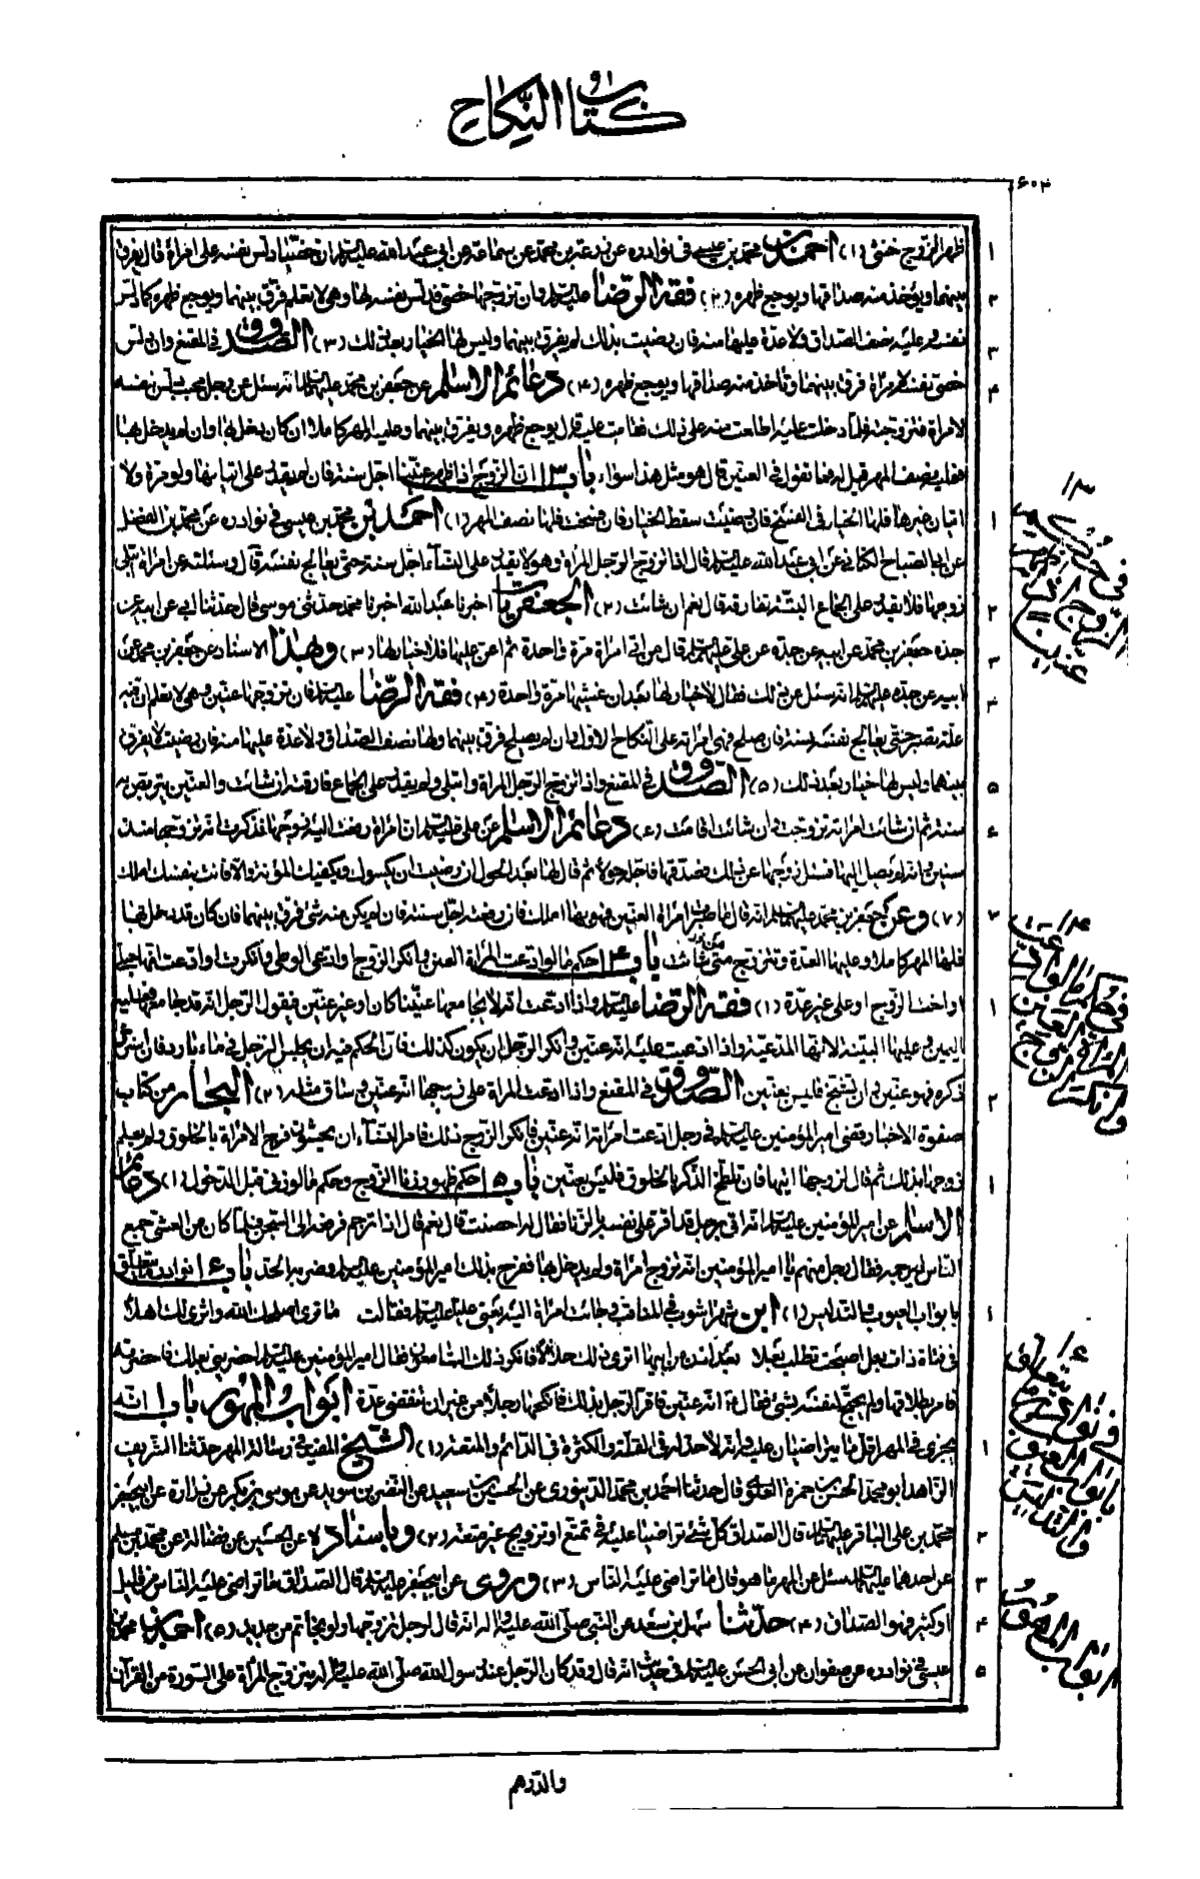 كتاب النكاح
٦٠٣
ظهر الزوج خنثى (١) احمد بن محمد بن عيسى في نوادره عن زرعة بن محمد عن سماعة عن ابي عبد الله عليه السلام ان خصيا دلس نفسه على امرأة قال يفرق
بينهما ويؤخذ منه صداقها ويوجع ظهره (٢) فقه الرضا عليه السلام وان تزوجها خصي قد دلس نفسه لها وهي لا تعلم فرق بينهما ويوجع ظهره كما دلس
نفسه وعليه نصف الصداق ولا عدة عليها منه فان رضيت بذلك لم يفرق بينهما وليس لها الخيار بعد ذلك (٣) الصدوق في المقنع وان دلس
خصي نفسه لامرأة فرق بينهما وتأخذ منه صداقها ويوجع ظهره (٤) دعائم الاسلام عن جعفر بن محمد عليه السلام انه سئل عن رجل مجبوب دلس نفسه
لامرأة فتزوجته فلما دخلت عليه اطلعت منه على ذلك فقامت عليه قال يوجع ظهره ويفرق بينهما وعليه المهر كاملا ان كان دخل بها وان لم يدخل بها
فعليه نصف المهر قيل له فما تقول في العنين قال هو مثل هذا سواء باب ١٣ ان الزوج اذا ظهر عنينا اجل سنة فان لم يقدر على اتيانها ولو مرة ولا
اتيان غيرها فلها الخيار في الفسخ فان رضيت سقط الخيار فان فسخت فلها نصف المهر (١) احمد بن محمد بن عيسى في نوادره عن محمد بن الفضيل
عن ابي الصباح الكناني عن ابي عبد الله عليه السلام قال اذا تزوج الرجل المرأة وهو لا يقدر على النساء اجل سنة حتى يعالج نفسه قال وسئلته عن امرأة ابتلى
زوجها فلا يقدر على الجماع البتة تفارقه قال نعم ان شائت (٢) الجعفريات اخبرنا عبد الله اخبرنا محمد حدثني موسى قال حدثنا ابي عن ابيه عن
جده جعفر بن محمد عن ابيه عن جده عن علي عليهم السلام قال من اتى امرأة مرة واحدة ثم اعن عليها فلا خيار لها (٣) وبهذا الاسناد عن جعفر بن محمد عن
ابيه عن جده عليهم السلام انه سئل عن ذلك فقال لا خيار لها بعد ان غشيها مرة واحدة (٤) فقه الرضا عليه السلام فان تزوجها عنين وهي لا تعلم ان فيه
علة تصبر حتى يعالج نفسه سنة فان صلح فهي امرأته على النكاح الاول وان لم يصلح فرق بينهما ولها نصف الصداق ولا عدة عليها منه فان رضيت لا يفرق
بينهما وليس لها خيار بعد ذلك (٥) الصدوق في المقنع واذا تزوج الرجل المرأة وابتلى ولم يقدر على الجماع فارقته ان شائت والعنين يتربص به
سنة ثم ان شائت امرأته تزوجت وان شائت اقامت (٦) دعائم الاسلام عن علي عليه السلام ان امرأة رفعت اليه زوجها فذكرت انه تزوجها منذ
سنين وانه لم يصل اليها فسئل زوجها عن ذلك فصدقها فاجله حولا ثم قال لها بعد الحول ان رضيت ان يكسوك ويكفيك المؤنة والا فانت بنفسك املك
(٧) وعن جعفر بن محمد عليهما السلام انه قال اذا املك فان رفعته اجل سنة فان لم يكن منه شئ فرق بينهما فان كان قد دخل بها
فلها المهر كاملا وعليها العدة وتتزوج متى شائت باب ١٤ حكم ما لو ادعت المرأة العنن وانكر الزوج او ادعى الوطي وانكرت او ادعت انها حبلى
او اخت الزوج او على غير عدة (١) فقه الرضا عليه السلام واذا ادعت انه لا يجامعها عنينا كان او غير عنين فيقول الرجل انه قد جامعها فعليه
اليمين وعليها البينة لانها المدعية واذا ادعت عليه انه عنين وانكر الرجل ان يكون كذلك فان الحكم فيه ان يجلس الرجل في ماء بارد فان استرخى
ذكره فهو عنين وان تشنج فليس بعنين الصدوق في المقنع واذا ادعت المرأة على زوجها انه عنين وساق مثله (٢) البحار من كتاب
صفوة الاخبار وقضى امير المؤمنين عليه السلام في رجل ادعت امرأته انه عنين فانكر الزوج ذلك فامر النساء ان يحشون فرج الامرأة بالخلوق ولم يعلم
زوجها بذلك ثم قال لزوجها ائتها فان تلطخ الذكر بالخلوق فليس بعنين باب ١٥ حكم ظهور زنا الزوج وحكم ما لو زنى قبل الدخول (١) دعائم
الاسلام عن امير المؤمنين عليه السلام انه اتى برجل قد اقر على نفسه بالزنا فقال له احصنت قال نعم قال اذا ترجم فرفعه الى السجن فلما كان من العشي جمع
الناس ليرجمه فقال رجل منهم يا امير المؤمنين انه تزوج امرأة ولم يدخل بها ففرح بذلك امير المؤمنين عليه السلام وضربه الحد باب ١٦ نوادر ما يتعلق
بابواب العيوب والتدليس (١) ابن شهر اشوب في المناقب وجائت امرأة اليه يعني عليا عليه السلام فقالت ما ترى اصلحك الله واثرى لك اهلا
في فتاة ذات بعل اصبحت تطلب بعلا بعد اذن من ابيها اترى ذلك حلا فانكر ذلك السامعون فقال امير المؤمنين عليه السلام احضريني بعلك فاحضرته
فامره بطلاقها ولم يحتج لنفسه بشئ فقال انه عنين فاقر الرجل بذلك فانكحها رجلا من غير ان تقضي عدة ابواب المهور باب ١ انه
يجزي في المهر اقل ما يتراضيان عليه وانه لا حد له في القلة والكثرة في الدائم والمتعة (١) الشيخ المفيد في رسالة المهر حدثنا الشريف
الزاهد ابو محمد الحسن بن حمزة العلوي قال حدثنا احمد بن محمد الدينوري عن الحسين بن سعيد عن النضر بن سويد عن موسى بن بكر عن زرارة عن ابي جعفر
محمد بن علي الباقر عليهما السلام قال الصداق كل شئ تراضيا عليه في تمتع او تزويج غير متعة (٢) وباسناده عن الحسين عن فضالة عن محمد بن مسلم
عن احدهما عليهما السلام سئل عن المهر ما هو قال ما تراضى عليه الناس (٣) وروى عن ابي جعفر عليه السلام قال الصداق ما تراضى عليه الناس من قليل
او كثير فهو الصداق (٤) حدثنا سهل بن سعد عن النبي صلى الله عليه وآله انه قال لرجل تزوجها ولو بخاتم من حديد (٥) احمد بن محمد بن
عيسى في نوادره عن صفوان عن ابي الحسن عليه السلام في حديث انه قال وقد كان الرجل عند رسول الله صلى الله عليه وآله يتزوج المرأة على السورة من القرآن
والدرهم
ابواب المهور